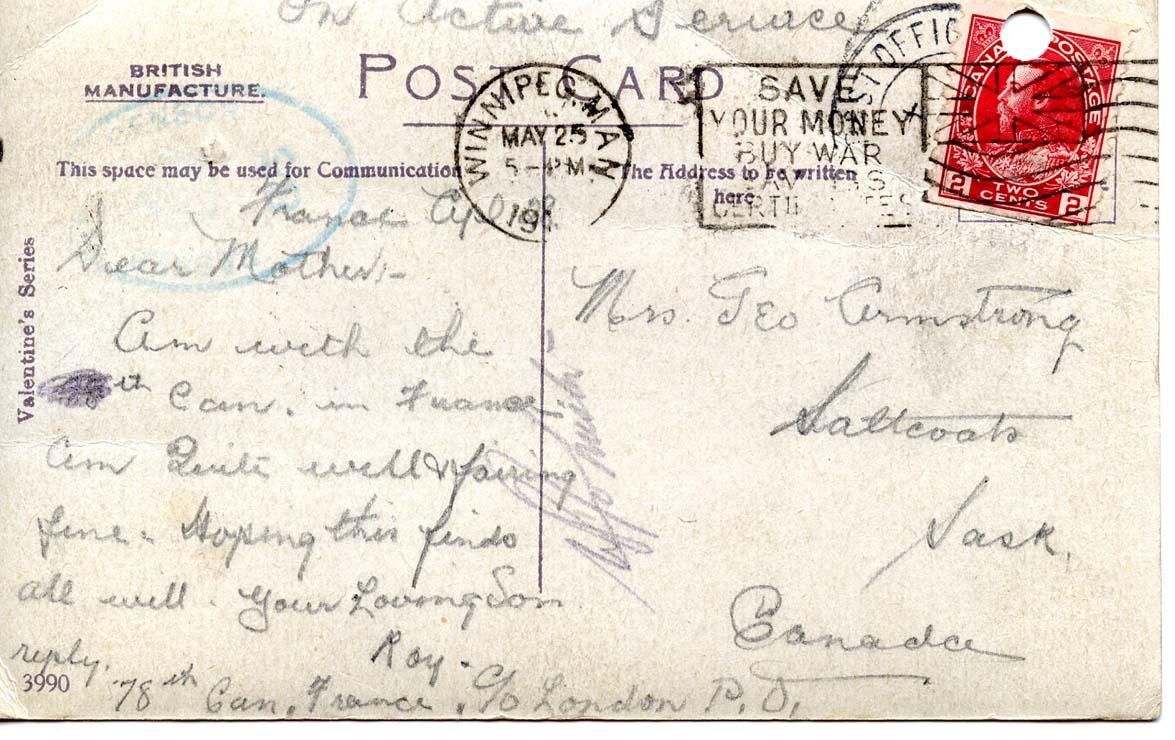 On Active Service
BRITISH
MANUFACTURE.
POST CARD
WINNIPEG. MAN
MAY 25
PM
19
SAVE
YOUR MONEY
BUY WAR
SAVINGS
CERTIFICATES
POST OFFIC
CANADA POSTAGE
2 TWO CENTS 2
This space may be used for Communication
The Address to be written
here.
Valentine's Series
France
Dear Mother:-
Am with the
th Can. in France.
Am Quite well & fairing
fine. Hoping this finds
all well. Your Loving Son
Roy.
reply.
78th Can. France. C/o London P.O.
3990
Mrs. Geo Armstrong
Saltcoats
Sask.
Canada